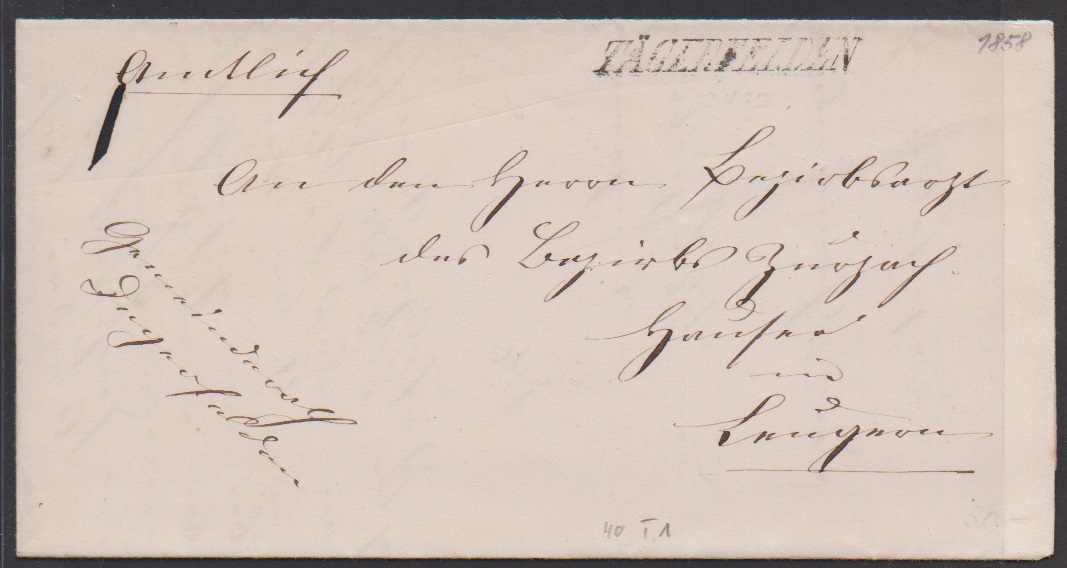 Amtlich
TÄGERFELDEN
1858
An den Herrn Bezirksarzt
des Bezirks Zurzach
Hauser
in
Leugern
Gemeindrath
Tegerfelden
40 I,1